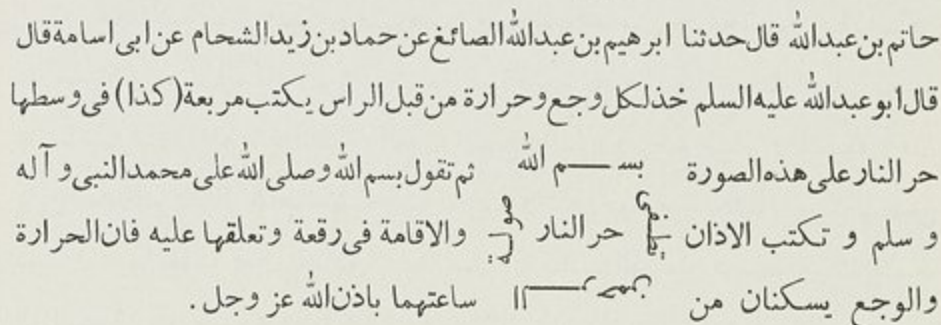 حاتم بن عبدالله قال حدثنا ابرهيم بن عبدالله الصائغ عن حماد بن زيد الشحام عن ابى اسامة قال
قال ابو عبدالله عليه السلم خذ لكل وجع وحرارة من قبل الراس يكتب مربعة (كذا) فى وسطها
حر النار على هذه الصورة بســـم الله ثم تقول بسم الله وصلى الله على محمد النبى و آله
و سلم و تكتب الاذان حر النار والاقامة فى رقعة وتعلقها عليه فان الحرارة
والوجع يسكنان من الـــرحمن ساعتهما باذن الله عز وجل .